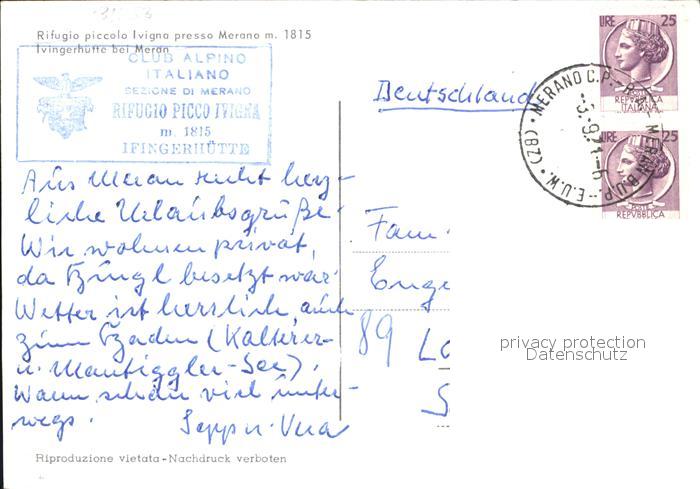 Rifugio piccolo Ivigna presso Merano m. 1815
Ivingerhütte bei Meran
CLUB ALPINO
ITALIANO
SEZIONE DI MERANO
RIFUGIO PICCO IVIGNA
m. 1815
IFINGERHÜTTE
Aus Meran recht herz-
liche Urlaubsgrüße.
Wir wohnen privat,
da besetzt war.
Wetter ist herrlich, auch
zum Baden (Kalterer-
u. Montiggler-See).
Waren schon viel unter-
wegs. Sepp u. Vera
Riproduzione vietata - Nachdruck verboten
Deutschland
LIRE 25
POSTE
REPVBBLICA
ITALIANA
LIRE 25
POSTE
REPVBBLICA
MERANO C.P. - MERAN B.U.P. - E.U.W. (BZ)
Fam.
Euge
89 La
S
privacy protection
Datenschutz